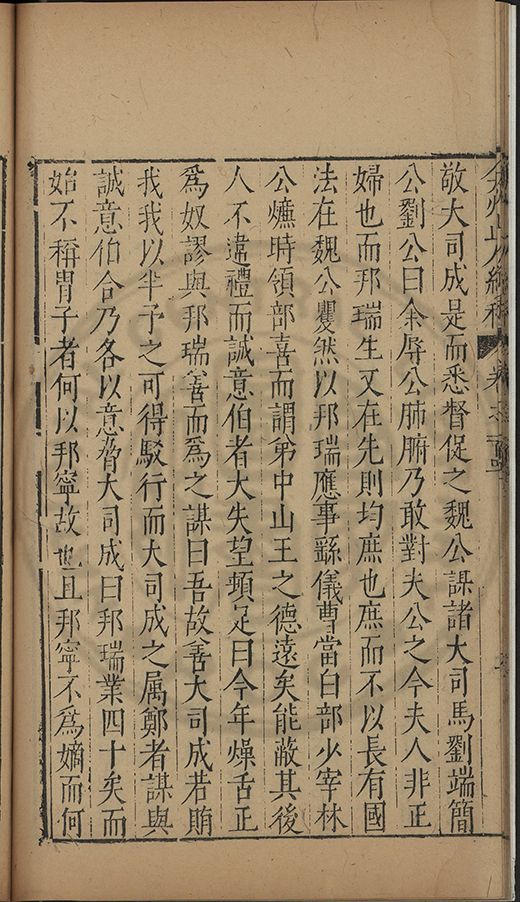 弇州山人續稿
敬大司成是而悉督促之魏公謀諸大司馬劉端簡
公劉公曰余辱公肺腑乃敢對夫公之今夫人非正
婦也而邦瑞生又在先則均庶也庶而不以長有國
法在魏公矍然以邦瑞應事繇儀曹當白部少宰林
公爌時領部喜而謂弟中山王之德遠矣能蔽其後
人不違禮而誠意伯者大失望頓足曰今年燥舌正
為奴謬與邦瑞善而為之謀曰吾故善大司成若賄
我我以半予之可得駁行而大司成之属鄭者謀與
誠意伯合乃各以意脅大司成曰邦瑞業四十矣而
始不稱冑子者何以邦寧故也且邦寧不為嫡而何